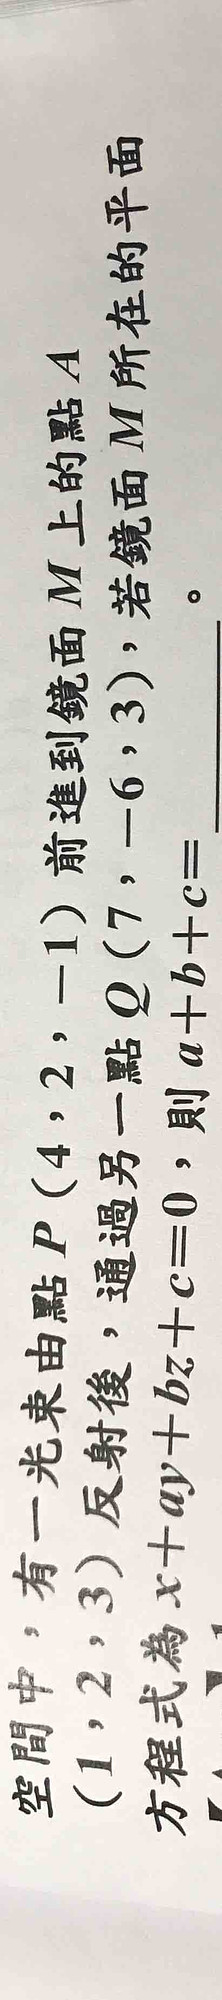 空間中，有一光束由點P（4，2，－1）前進到鏡面M上的點A
（1，2，3）反射後，通過另一點Q（7，－6，3），若鏡面M所在的平面
方程式為x＋ay＋bz＋c＝0，則a＋b＋c＝______。